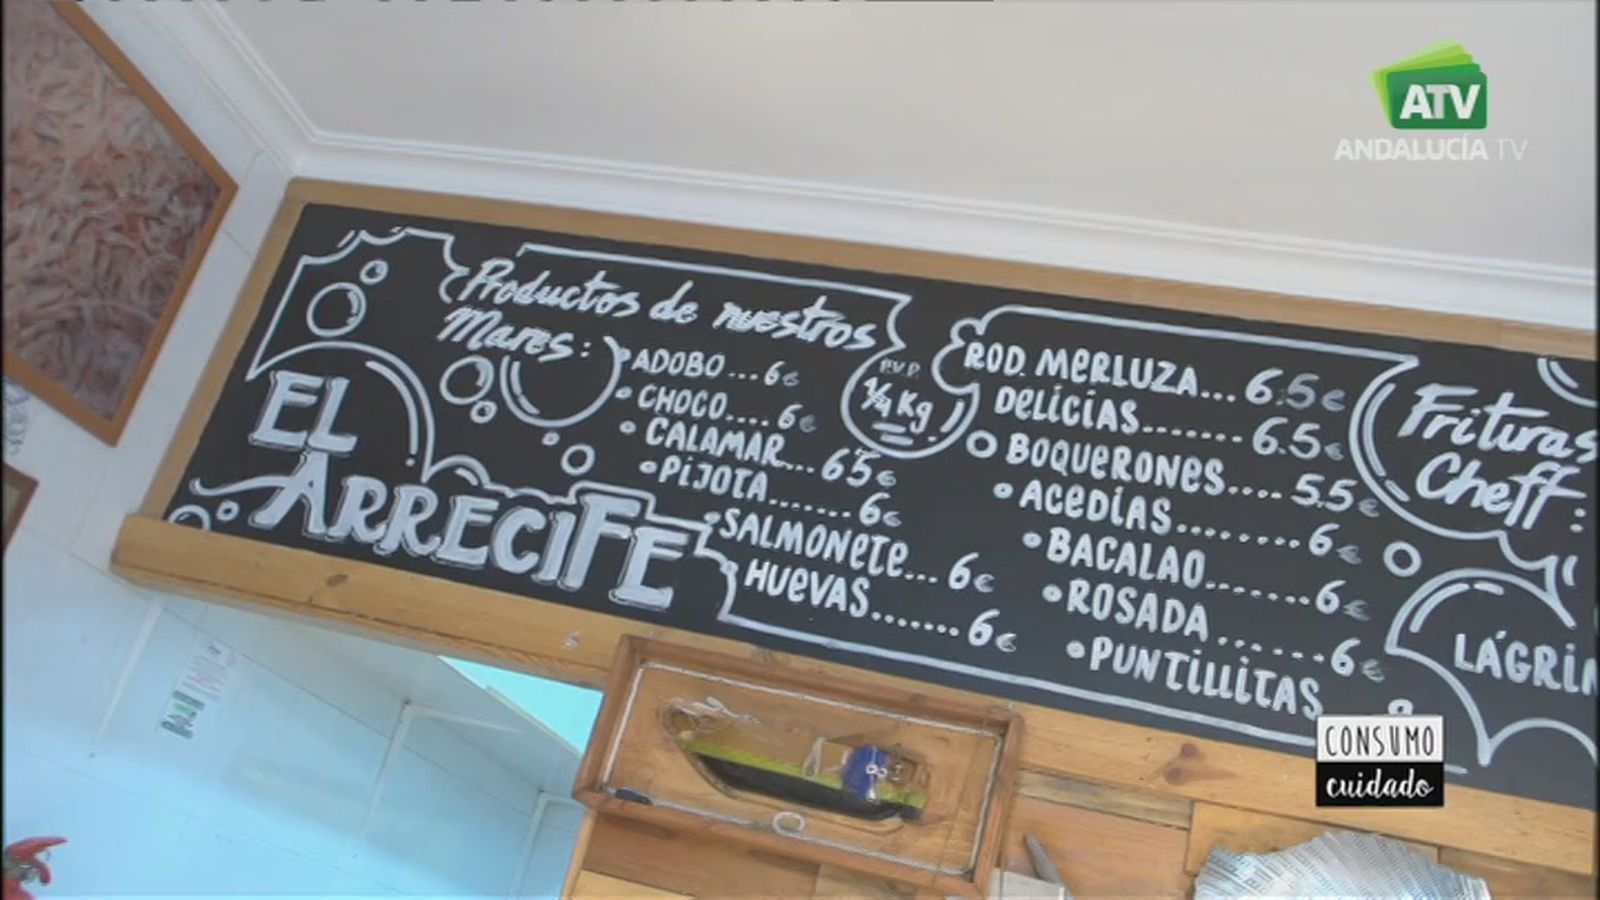 ATV
ANDALUCÍA TV
EL
ARRECIFE
Productos de nuestros
Mares:
P.V.P.
1/4 Kg
• ADOBO... 6€
• CHOCO.... 6€
• CALAMAR... 65€
• PIJOTA....... 6€
• SALMONETE... 6€
• HUEVAS....... 6€
ROD. MERLUZA... 6.5€
DELICIAS....... 6.5€
BOQUERONES.... 5.5€
• ACEDÍAS........ 6€
• BACALAO....... 6€
• ROSADA ...... 6€
• PUNTILLITAS
Frituras
Cheff:
LÁGRIM
CONSUMO
cuidado